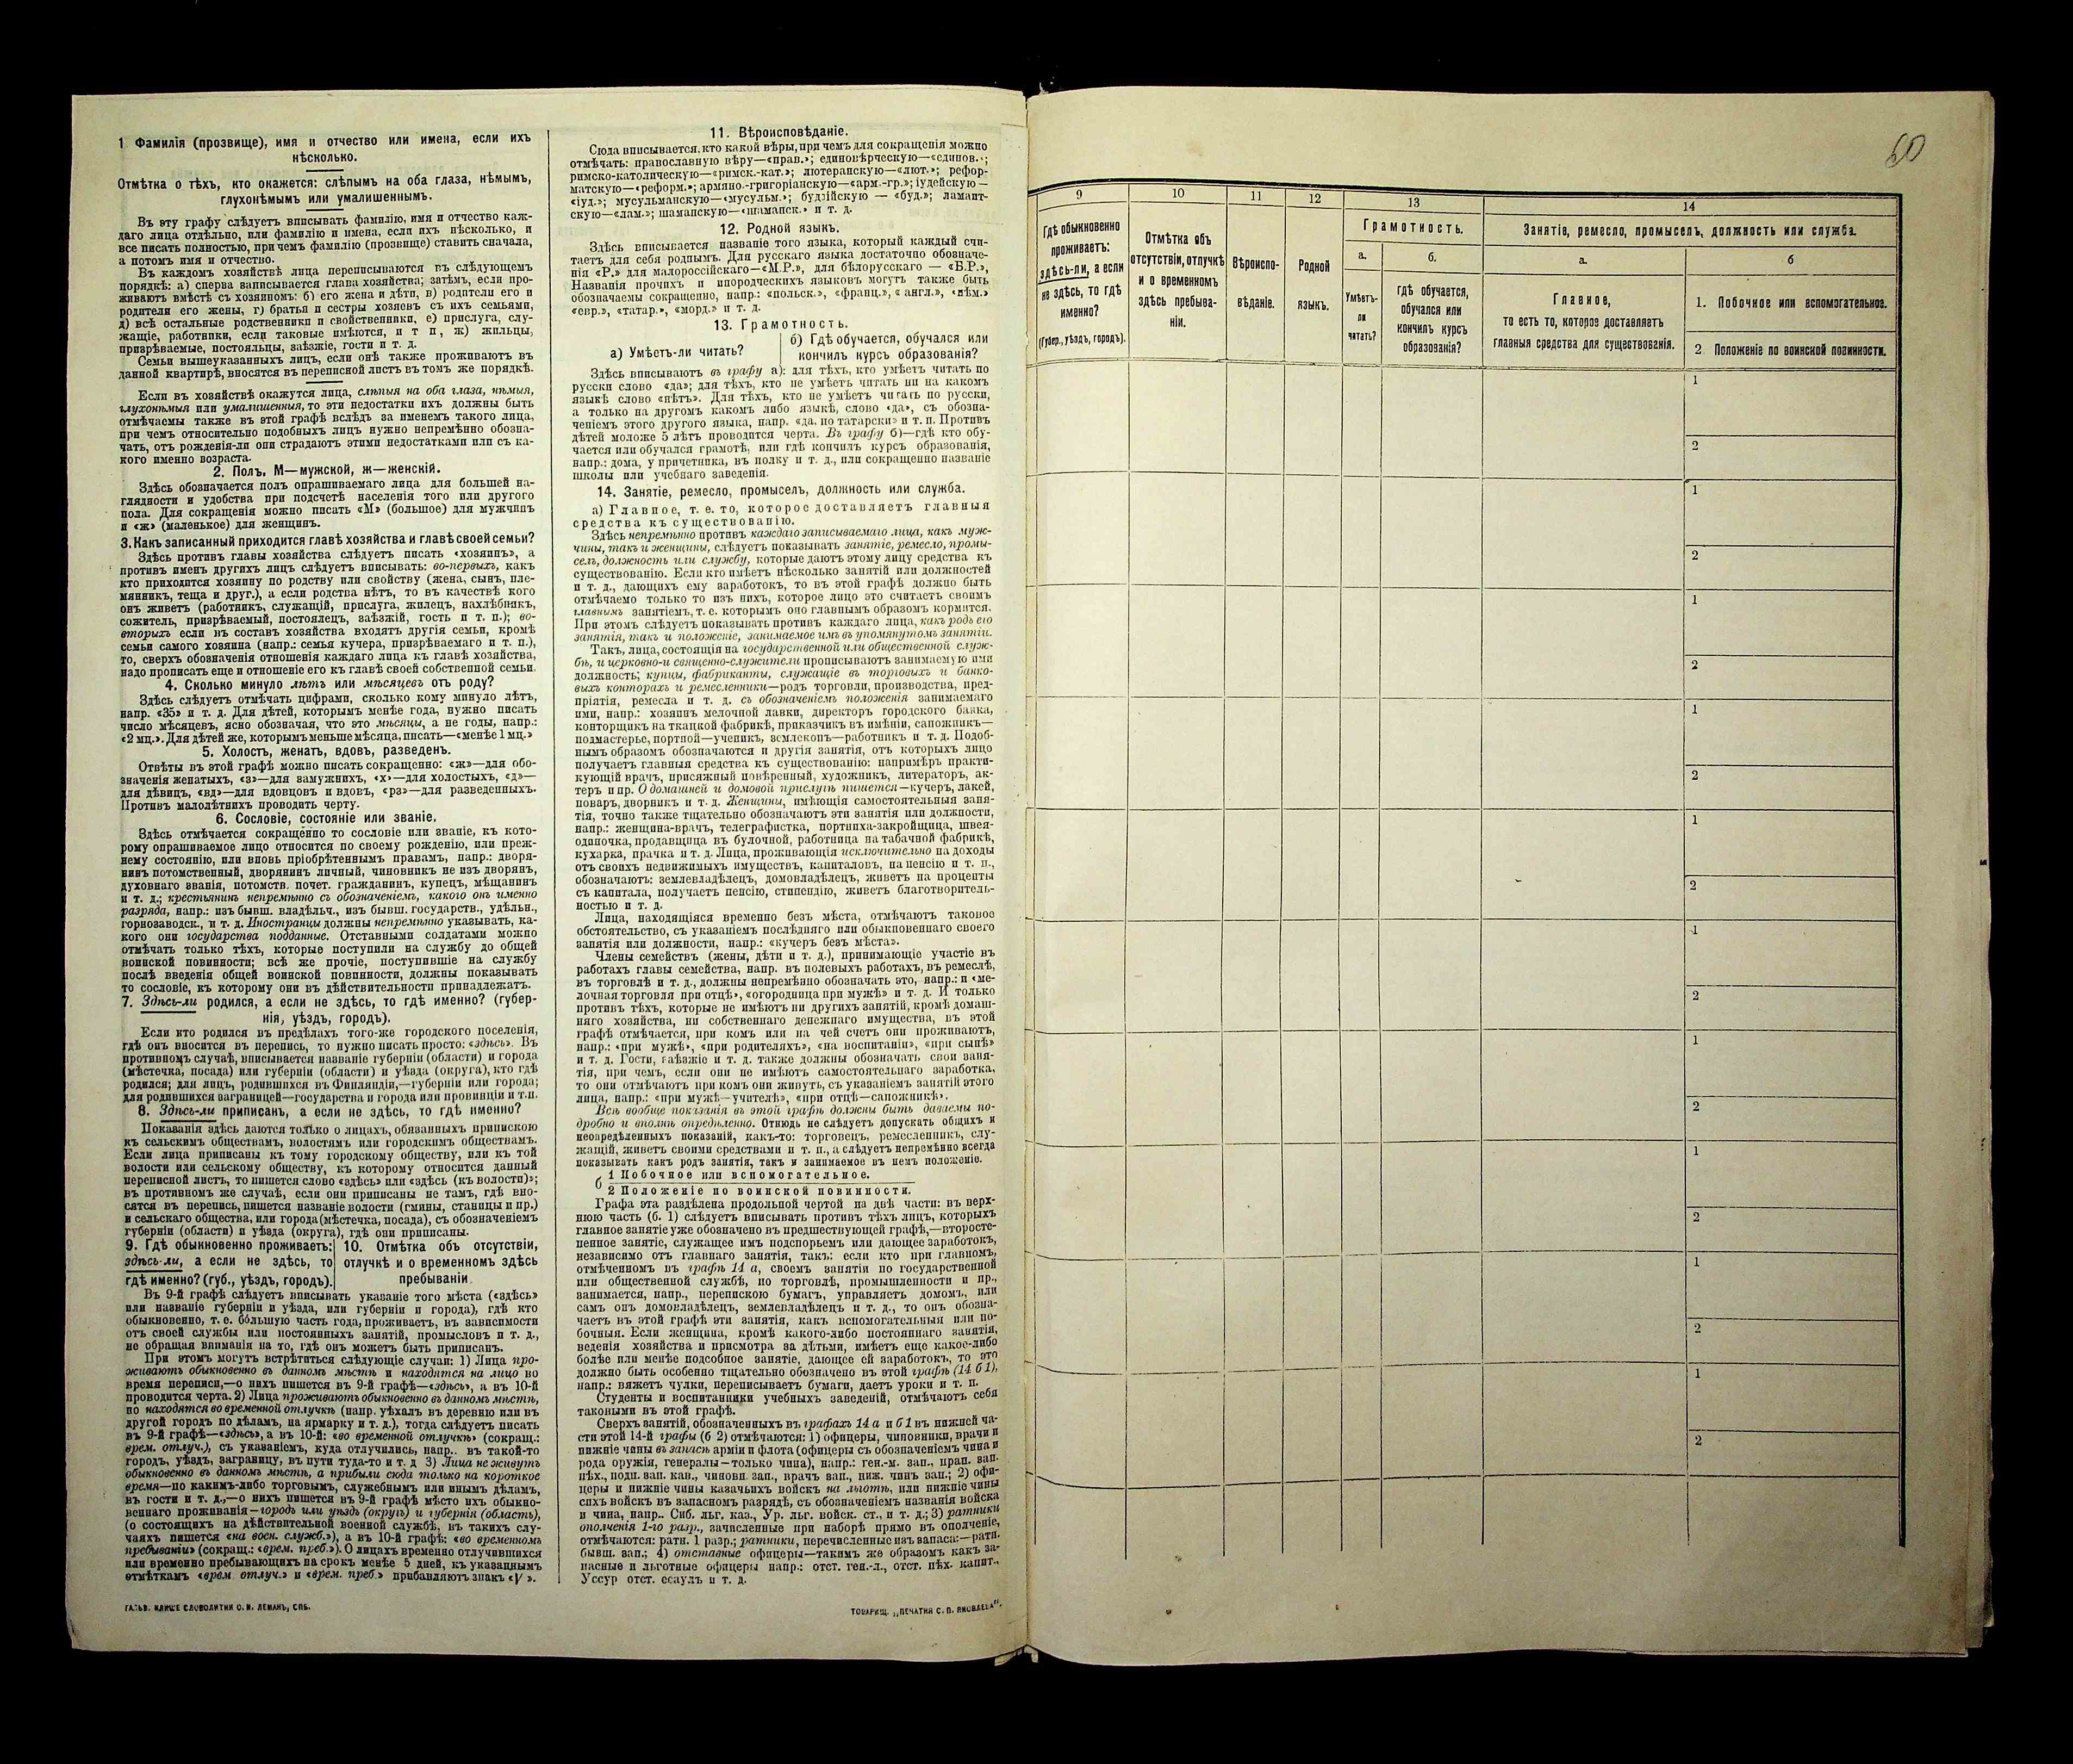 1 Фамилія (прозвище), имя и отчество или имена, если ихъ
нѣсколько.
Отмѣтка о тѣхъ, кто окажется: слѣпымъ на оба глаза, нѣмымъ,
глухонѣмымъ или умалишеннымъ.
Въ эту графу слѣдуетъ вписывать фамилію, имя и отчество каж-
даго лица отдѣльно, или фамилію и имена, если ихъ нѣсколько, и
все писать полностью, при чемъ фамилію (прозвище) ставить сначала,
а потомъ имя и отчество.
Въ каждомъ хозяйствѣ лица переписываются въ слѣдующемъ
порядкѣ: а) сперва записывается глава хозяйства; затѣмъ, если про-
живаютъ вмѣстѣ съ хозяиномъ: б) его жена и дѣти, в) родители его и
родители его жены, г) братья и сестры хозяевъ съ ихъ семьями,
д) всѣ остальные родственники и свойственники, е) прислуга, слу-
жащіе, работники, если таковые имѣются, и т п, ж) жильцы,
призрѣваемые, постояльцы, заѣзжіе, гости и т. д.
Семьи вышеуказанныхъ лицъ, если онѣ также проживаютъ въ
данной квартирѣ, вносятся въ переписной листъ въ томъ же порядкѣ.
Если въ хозяйствѣ окажутся лица, слѣпыя на оба глаза, нѣмыя,
глухонѣмыя или умалишенныя, то эти недостатки ихъ должны быть
отмѣчаемы также въ этой графѣ вслѣдъ за именемъ такого лица,
при чемъ относительно подобныхъ лицъ нужно непремѣнно обозна-
чать, отъ рожденія-ли они страдаютъ этими недостатками или съ ка-
кого именно возраста.
2. Полъ, М—мужской, ж—женскій.
Здѣсь обозначается полъ опрашиваемаго лица для большей на-
глядности и удобства при подсчетѣ населенія того или другого
пола. Для сокращенія можно писать «М» (большое) для мужчинъ
и «ж» (маленькое) для женщинъ.
3. Какъ записанный приходится главѣ хозяйства и главѣ своей семьи?
Здѣсь противъ главы хозяйства слѣдуетъ писать «хозяинъ», а
противъ именъ другихъ лицъ слѣдуетъ вписывать: во-первыхъ, какъ
кто приходится хозяину по родству или свойству (жена, сынъ, пле-
мянникъ, теща и друг.), а если родства нѣтъ, то въ качествѣ кого
онъ живетъ (работникъ, служащій, прислуга, жилецъ, нахлѣбникъ,
сожитель, призрѣваемый, постоялецъ, заѣзжій, гость и т. п.); во-
вторыхъ если въ составъ хозяйства входятъ другія семьи, кромѣ
семьи самого хозяина (напр.: семья кучера, призрѣваемаго и т. п.),
то, сверхъ обозначенія отношенія каждаго лица къ главѣ хозяйства,
надо прописать еще и отношеніе его къ главѣ своей собственной семьи.
4. Сколько минуло лѣтъ или мѣсяцевъ отъ роду?
Здѣсь слѣдуетъ отмѣчать цифрами, сколько кому минуло лѣтъ,
напр. «35» и т. д. Для дѣтей, которымъ менѣе года, нужно писать
число мѣсяцевъ, ясно обозначая, что это мѣсяцы, а не годы, напр.:
«2 мц.». Для дѣтей же, которымъ меньше мѣсяца, писать—«менѣе 1 мц.»
5. Холостъ, женатъ, вдовъ, разведенъ.
Отвѣты въ этой графѣ можно писать сокращенно: «ж»—для обо-
значенія женатыхъ, «з»—для замужнихъ, «х»—для холостыхъ, «д»—
для дѣвицъ, «вд»—для вдовцовъ и вдовъ, «рз»—для разведенныхъ.
Противъ малолѣтнихъ проводить черту.
6. Сословіе, состояніе или званіе.
Здѣсь отмѣчается сокращенно то сословіе или званіе, къ кото-
рому опрашиваемое лицо относится по своему рожденію, или преж-
нему состоянію, или вновь пріобрѣтеннымъ правамъ, напр.: дворя-
нинъ потомственный, дворянинъ личный, чиновникъ не изъ дворянъ,
духовнаго званія, потомств. почет. гражданинъ, купецъ, мѣщанинъ
и т. д.; крестьянинъ непремѣнно съ обозначеніемъ, какого онъ именно
разряда, напр.: изъ бывш. владѣльч., изъ бывш. государств., удѣльн.,
горнозаводск., и т. д. Иностранцы должны непремѣнно указывать, ка-
кого они государства подданные. Отставными солдатами можно
отмѣчать только тѣхъ, которые поступили на службу до общей
воинской повинности; всѣ же прочіе, поступившіе на службу
послѣ введенія общей воинской повинности, должны показывать
то сословіе, къ которому они въ дѣйствительности принадлежатъ.
7. Здѣсь-ли родился, а если не здѣсь, то гдѣ именно? (губер-
нія, уѣздъ, городъ).
Если кто родился въ предѣлахъ того-же городского поселенія,
гдѣ онъ вносится въ перепись, то нужно писать просто: «здѣсь». Въ
противномъ случаѣ, вписывается названіе губерніи (области) и города
(мѣстечка, посада) или губерніи (области) и уѣзда (округа), кто гдѣ
родился; для лицъ, родившихся въ Финляндіи,—губерніи или города;
для родившихся заграницей—государства и города или провинціи и т.п.
8. Здѣсь-ли приписанъ, а если не здѣсь, то гдѣ именно?
Показанія здѣсь даются только о лицахъ, обязанныхъ припискою
къ сельскимъ обществамъ, волостямъ или городскимъ обществамъ.
Если лица приписаны къ тому городскому обществу, или къ той
волости или сельскому обществу, къ которому относится данный
переписной листъ, то пишется слово «здѣсь» или «здѣсь (къ волости)»;
въ противномъ же случаѣ, если они приписаны не тамъ, гдѣ вно-
сятся въ перепись, пишется названіе волости (гмины, станицы и пр.)
и сельскаго общества, или города (мѣстечка, посада), съ обозначеніемъ
губерніи (области) и уѣзда (округа), гдѣ они приписаны.
9. Гдѣ обыкновенно проживаетъ:
здѣсь-ли, а если не здѣсь, то
гдѣ именно? (губ., уѣздъ, городъ).
10. Отмѣтка объ отсутствіи,
отлучкѣ и о временномъ здѣсь
пребываніи
Въ 9-й графѣ слѣдуетъ вписывать указаніе того мѣста («здѣсь»
или названіе губерніи и уѣзда, или губерніи и города), гдѣ кто
обыкновенно, т. е. бо́льшую часть года, проживаетъ, въ зависимости
отъ своей службы или постоянныхъ занятій, промысловъ и т. д.,
не обращая вниманія на то, гдѣ онъ можетъ быть приписанъ.
При этомъ могутъ встрѣтиться слѣдующіе случаи: 1) Лица про-
живаютъ обыкновенно въ данномъ мѣстѣ и находятся на лицо во
время переписи,—о нихъ пишется въ 9-й графѣ—«здѣсь», а въ 10-й
проводится черта. 2) Лица проживаютъ обыкновенно въ данномъ мѣстѣ,
но находятся во временной отлучкѣ (напр. уѣхалъ въ деревню или въ
другой городъ по дѣламъ, на ярмарку и т. д.), тогда слѣдуетъ писать
въ 9-й графѣ—«здѣсь», а въ 10-й: «во временной отлучкѣ» (сокращ.:
врем. отлуч.), съ указаніемъ, куда отлучились, напр.. въ такой-то
городъ, уѣздъ, заграницу, въ пути туда-то и т. д 3) Лица не живутъ
обыкновенно въ данномъ мѣстѣ, а прибыли сюда только на короткое
время—по какимъ-либо торговымъ, служебнымъ или инымъ дѣламъ,
въ гости и т. д.,—о нихъ пишется въ 9-й графѣ мѣсто ихъ обыкно-
веннаго проживанія—городъ или уѣздъ (округъ) и губернія (область),
(о состоящихъ на дѣйствительной военной службѣ, въ такихъ слу-
чаяхъ пишется «на воен. служб.»), а въ 10-й графѣ: «во временномъ
пребываніи» (сокращ.: «врем. преб.»). О лицахъ временно отлучившихся
или временно пребывающихъ на срокъ менѣе 5 дней, къ указаннымъ
отмѣткамъ «врем. отлуч.» и «врем. преб.» прибавляютъ знакъ «V».
ГАЛЬВ. КЛИШЕ СЛОВОЛИТНИ О. И. ЛЕМАНЪ, СПБ.
11. Вѣроисповѣданіе.
Сюда вписывается, кто какой вѣры, при чемъ для сокращенія можно
отмѣчать: православную вѣру—«прав.»; единовѣрческую—«единов.»;
римско-католическую—«римск.-кат.»; лютеранскую—«лют.»; рефор-
матскую—«реформ.»; армяно-григоріанскую—«арм.-гр.»; іудейскую—
«іуд.»; мусульманскую—«мусульм.»; буддійскую — «буд.»; ламаит-
скую—«лам.»; шаманскую—«шаманск.» и т. д.
12. Родной языкъ.
Здѣсь вписывается названіе того языка, который каждый счи-
таетъ для себя роднымъ. Для русскаго языка достаточно обозначе-
нія «Р.» для малороссійскаго—«М.Р.», для бѣлорусскаго — «Б.Р.»,
Названія прочихъ и инородческихъ языковъ могутъ также быть
обозначаемы сокращенно, напр.: «польск.», «франц.», « англ.», «нѣм.»
«евр.», «татар.», «морд.» и т. д.
13. Грамотность.
а) Умѣетъ-ли читать?
б) Гдѣ обучается, обучался или
кончилъ курсъ образованія?
Здѣсь вписываютъ въ графу а): для тѣхъ, кто умѣетъ читать по
русски слово «да»; для тѣхъ, кто не умѣетъ читать ни на какомъ
языкѣ слово «нѣтъ». Для тѣхъ, кто не умѣетъ читать по русски,
а только на другомъ какомъ либо языкѣ, слово «да», съ обозна-
ченіемъ этого другого языка, напр. «да, по татарски» и т. п. Противъ
дѣтей моложе 5 лѣтъ проводится черта. Въ графу б)—гдѣ кто обу-
чается или обучался грамотѣ, или гдѣ кончилъ курсъ образованія,
напр.: дома, у причетника, въ полку и т. д., или сокращенно названіе
школы или учебнаго заведенія.
14. Занятіе, ремесло, промыселъ, должность или служба.
а) Главное, т. е. то, которое доставляетъ главныя
средства къ существованію.
Здѣсь непремѣнно противъ каждаго записываемаго лица, какъ муж-
чины, такъ и женщины, слѣдуетъ показывать занятіе, ремесло, промы-
селъ, должность или службу, которые даютъ этому лицу средства къ
существованію. Если кто имѣетъ нѣсколько занятій или должностей
и т. д., дающихъ ему заработокъ, то въ этой графѣ должно быть
отмѣчаемо только то изъ нихъ, которое лицо это считаетъ своимъ
главнымъ занятіемъ, т. е. которымъ оно главнымъ образомъ кормится.
При этомъ слѣдуетъ показывать противъ каждаго лица, какъ родъ его
занятія, такъ и положеніе, занимаемое имъ въ упомянутомъ занятіи.
Такъ, лица, состоящія на государственной или общественной служ-
бѣ, и церковно-и священно-служители прописываютъ занимаемую ими
должность; купцы, фабриканты, служащіе въ торговыхъ и банко-
выхъ конторахъ и ремесленники—родъ торговли, производства, пред-
пріятія, ремесла и т. д. съ обозначеніемъ положенія занимаемаго
ими, напр.: хозяинъ мелочной лавки, директоръ городского банка,
конторщикъ на ткацкой фабрикѣ, приказчикъ въ имѣніи, сапожникъ—
подмастерье, портной—ученикъ, землекопъ—работникъ и т. д. Подоб-
нымъ образомъ обозначаются и другія занятія, отъ которыхъ лицо
получаетъ главныя средства къ существованію: напримѣръ практи-
кующій врачъ, присяжный повѣренный, художникъ, литераторъ, ак-
теръ и пр. О домашней и домовой прислугѣ пишется—кучеръ, лакей,
поваръ, дворникъ и т. д. Женщины, имѣющія самостоятельныя заня-
тія, точно также тщательно обозначаютъ эти занятія или должности,
напр.: женщина-врачъ, телеграфистка, портниха-закройщица, швея-
одиночка, продавщица въ булочной, работница на табачной фабрикѣ,
кухарка, прачка и т. д. Лица, проживающія исключительно на доходы
отъ своихъ недвижимыхъ имуществъ, капиталовъ, на пенсію и т. п.,
обозначаютъ: землевладѣлецъ, домовладѣлецъ, живетъ на проценты
съ капитала, получаетъ пенсію, стипендію, живетъ благотворитель-
ностью и т. д.
Лица, находящіяся временно безъ мѣста, отмѣчаютъ таковое
обстоятельство, съ указаніемъ послѣдняго или обыкновеннаго своего
занятія или должности, напр.: «кучеръ безъ мѣста».
Члены семействъ (жены, дѣти и т. д.), принимающіе участіе въ
работахъ главы семейства, напр. въ полевыхъ работахъ, въ ремеслѣ,
въ торговлѣ и т. д., должны непремѣнно обозначать это, напр.: и «ме-
лочная торговля при отцѣ», «огородница при мужѣ» и т. д. И только
противъ тѣхъ, которые не имѣютъ ни другихъ занятій, кромѣ домаш-
няго хозяйства, ни собственнаго денежнаго имущества, въ этой
графѣ отмѣчается, при комъ или на чей счетъ они проживаютъ,
напр.: «при мужѣ», «при родителяхъ», «на воспитаніи», «при сынѣ»
и т. д. Гости, заѣзжіе и т. д. также должны обозначать свои заня-
тія, при чемъ, если они не имѣютъ самостоятельнаго заработка,
то они отмѣчаютъ при комъ они живутъ, съ указаніемъ занятій этого
лица, напр.: «при мужѣ—учителѣ», «при отцѣ—сапожникѣ».
Всѣ вообще показанія въ этой графѣ должны быть даваемы по-
дробно и вполнѣ опредѣленно. Отнюдь не слѣдуетъ допускать общихъ и
неопредѣленныхъ показаній, какъ-то: торговецъ, ремесленникъ, слу-
жащій, живетъ своими средствами и т. п., а слѣдуетъ непремѣнно всегда
показывать какъ родъ занятія, такъ и занимаемое въ немъ положеніе.
б 1 Побочное или вспомогательное.
2 Положеніе по воинской повинности.
Графа эта раздѣлена продольной чертой на двѣ части: въ верх-
нюю часть (б. 1) слѣдуетъ вписывать противъ тѣхъ лицъ, которыхъ
главное занятіе уже обозначено въ предшествующей графѣ,—второсте-
пенное занятіе, служащее имъ подспорьемъ или дающее заработокъ,
независимо отъ главнаго занятія, такъ: если кто при главномъ,
отмѣченномъ въ графѣ 14 а, своемъ занятіи по государственной
или общественной службѣ, по торговлѣ, промышленности и пр.,
занимается, напр., перепискою бумагъ, управляетъ домомъ, или
самъ онъ домовладѣлецъ, землевладѣлецъ и т. д., то онъ обозна-
чаетъ въ этой графѣ эти занятія, какъ вспомогательныя или по-
бочныя. Если женщина, кромѣ какого-либо постояннаго занятія,
веденія хозяйства и присмотра за дѣтьми, имѣетъ еще какое-либо
болѣе или менѣе подсобное занятіе, дающее ей заработокъ, то это
должно быть особенно тщательно обозначено въ этой графѣ (14 б 1),
напр.: вяжетъ чулки, переписываетъ бумаги, даетъ уроки и т. п.
Студенты и воспитанники учебныхъ заведеній, отмѣчаютъ себя
таковыми въ этой графѣ.
Сверхъ занятій, обозначенныхъ въ графахъ 14 а и б 1 въ нижней ча-
сти этой 14-й графы (б 2) отмѣчаются: 1) офицеры, чиновники, врачи и
нижніе чины въ запасѣ арміи и флота (офицеры съ обозначеніемъ чина и
рода оружія, генералы—только чина), напр.: ген.-м. зап., прап. зап.
пѣх., подп. зап. кав., чиновн. зап., врачъ зап., ниж. чинъ зап.; 2) офи-
церы и нижніе чины казачьихъ войскъ на льготѣ, или нижніе чины
сихъ войскъ въ запасномъ разрядѣ, съ обозначеніемъ названія войска
и чина, напр.. Сиб. льг. каз., Ур. льг. войск. ст., и т. д.; 3) ратники
ополченія 1-го разр., зачисленные при наборѣ прямо въ ополченіе,
отмѣчаются: ратн. 1 разр.; ратники, перечисленные изъ запаса:—ратн.
бывш. зап.; 4) отставные офицеры—такимъ же образомъ какъ за-
пасные и льготные офицеры напр.: отст. ген.-л., отст. пѣх. капит.,
Уссур отст. есаулъ и т. д.
ТОВАРИЩ. „ПЕЧАТНЯ С. П. ЯКОВЛЕВА".
60
9
10
11
12
13
14
Гдѣ обыкновенно
проживаетъ:
здѣсь-ли, а если
не здѣсь, то гдѣ
именно?
(Губер., уѣздъ, городъ).
Отмѣтка объ
отсутствіи, отлучкѣ
и о временномъ
здѣсь пребыва-
ніи.
Вѣроиспо-
вѣданіе.
Родной
языкъ.
Грамотность.
а.
б.
Умѣетъ-
ли
читать?
гдѣ обучается,
обучался или
кончилъ курсъ
образованія?
Занятіе, ремесло, промыселъ, должность или служба.
а.
б
Главное,
то есть то, которое доставляетъ
главныя средства для существованія.
1. Побочное или вспомогательное.
2 Положеніе по воинской повинности.
1
2
1
2
1
2
1
2
1
2
1
2
1
2
1
2
1
2
1
2